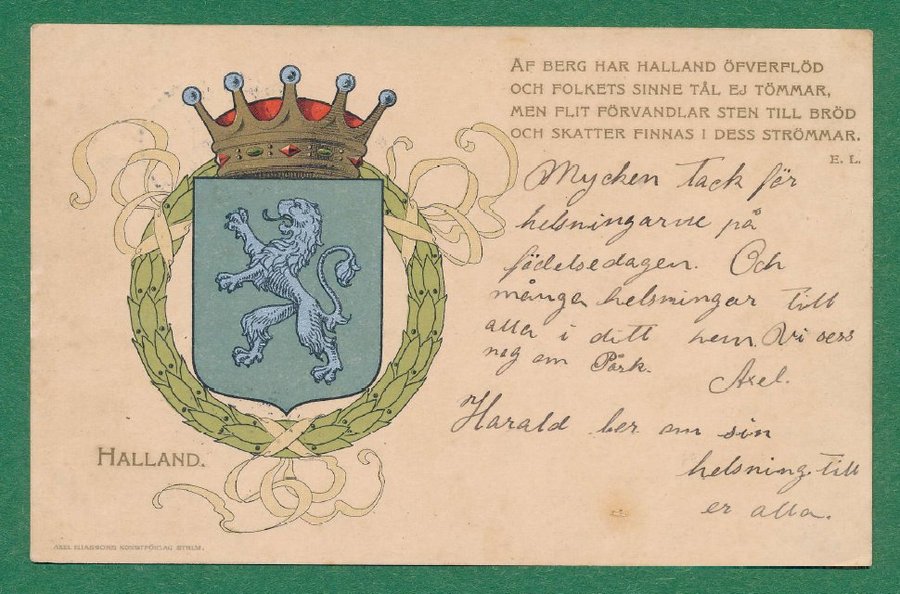 AF BERG HAR HALLAND ÖFVERFLÖD
OCH FOLKETS SINNE TÅL EJ TÖMMAR,
MEN FLIT FÖRVANDLAR STEN TILL BRÖD
OCH SKATTER FINNAS I DESS STRÖMMAR.
E. L.
Mycken tack för
helsningarne på
födelsedagen. Och
många helsningar till
alla i ditt hem. Vi sess
nog om Påsk.
Axel.
Harald ber om sin
helsning till
er alla.
HALLAND.
AXEL ELIASSONS KONSTFÖRLAG STHLM.